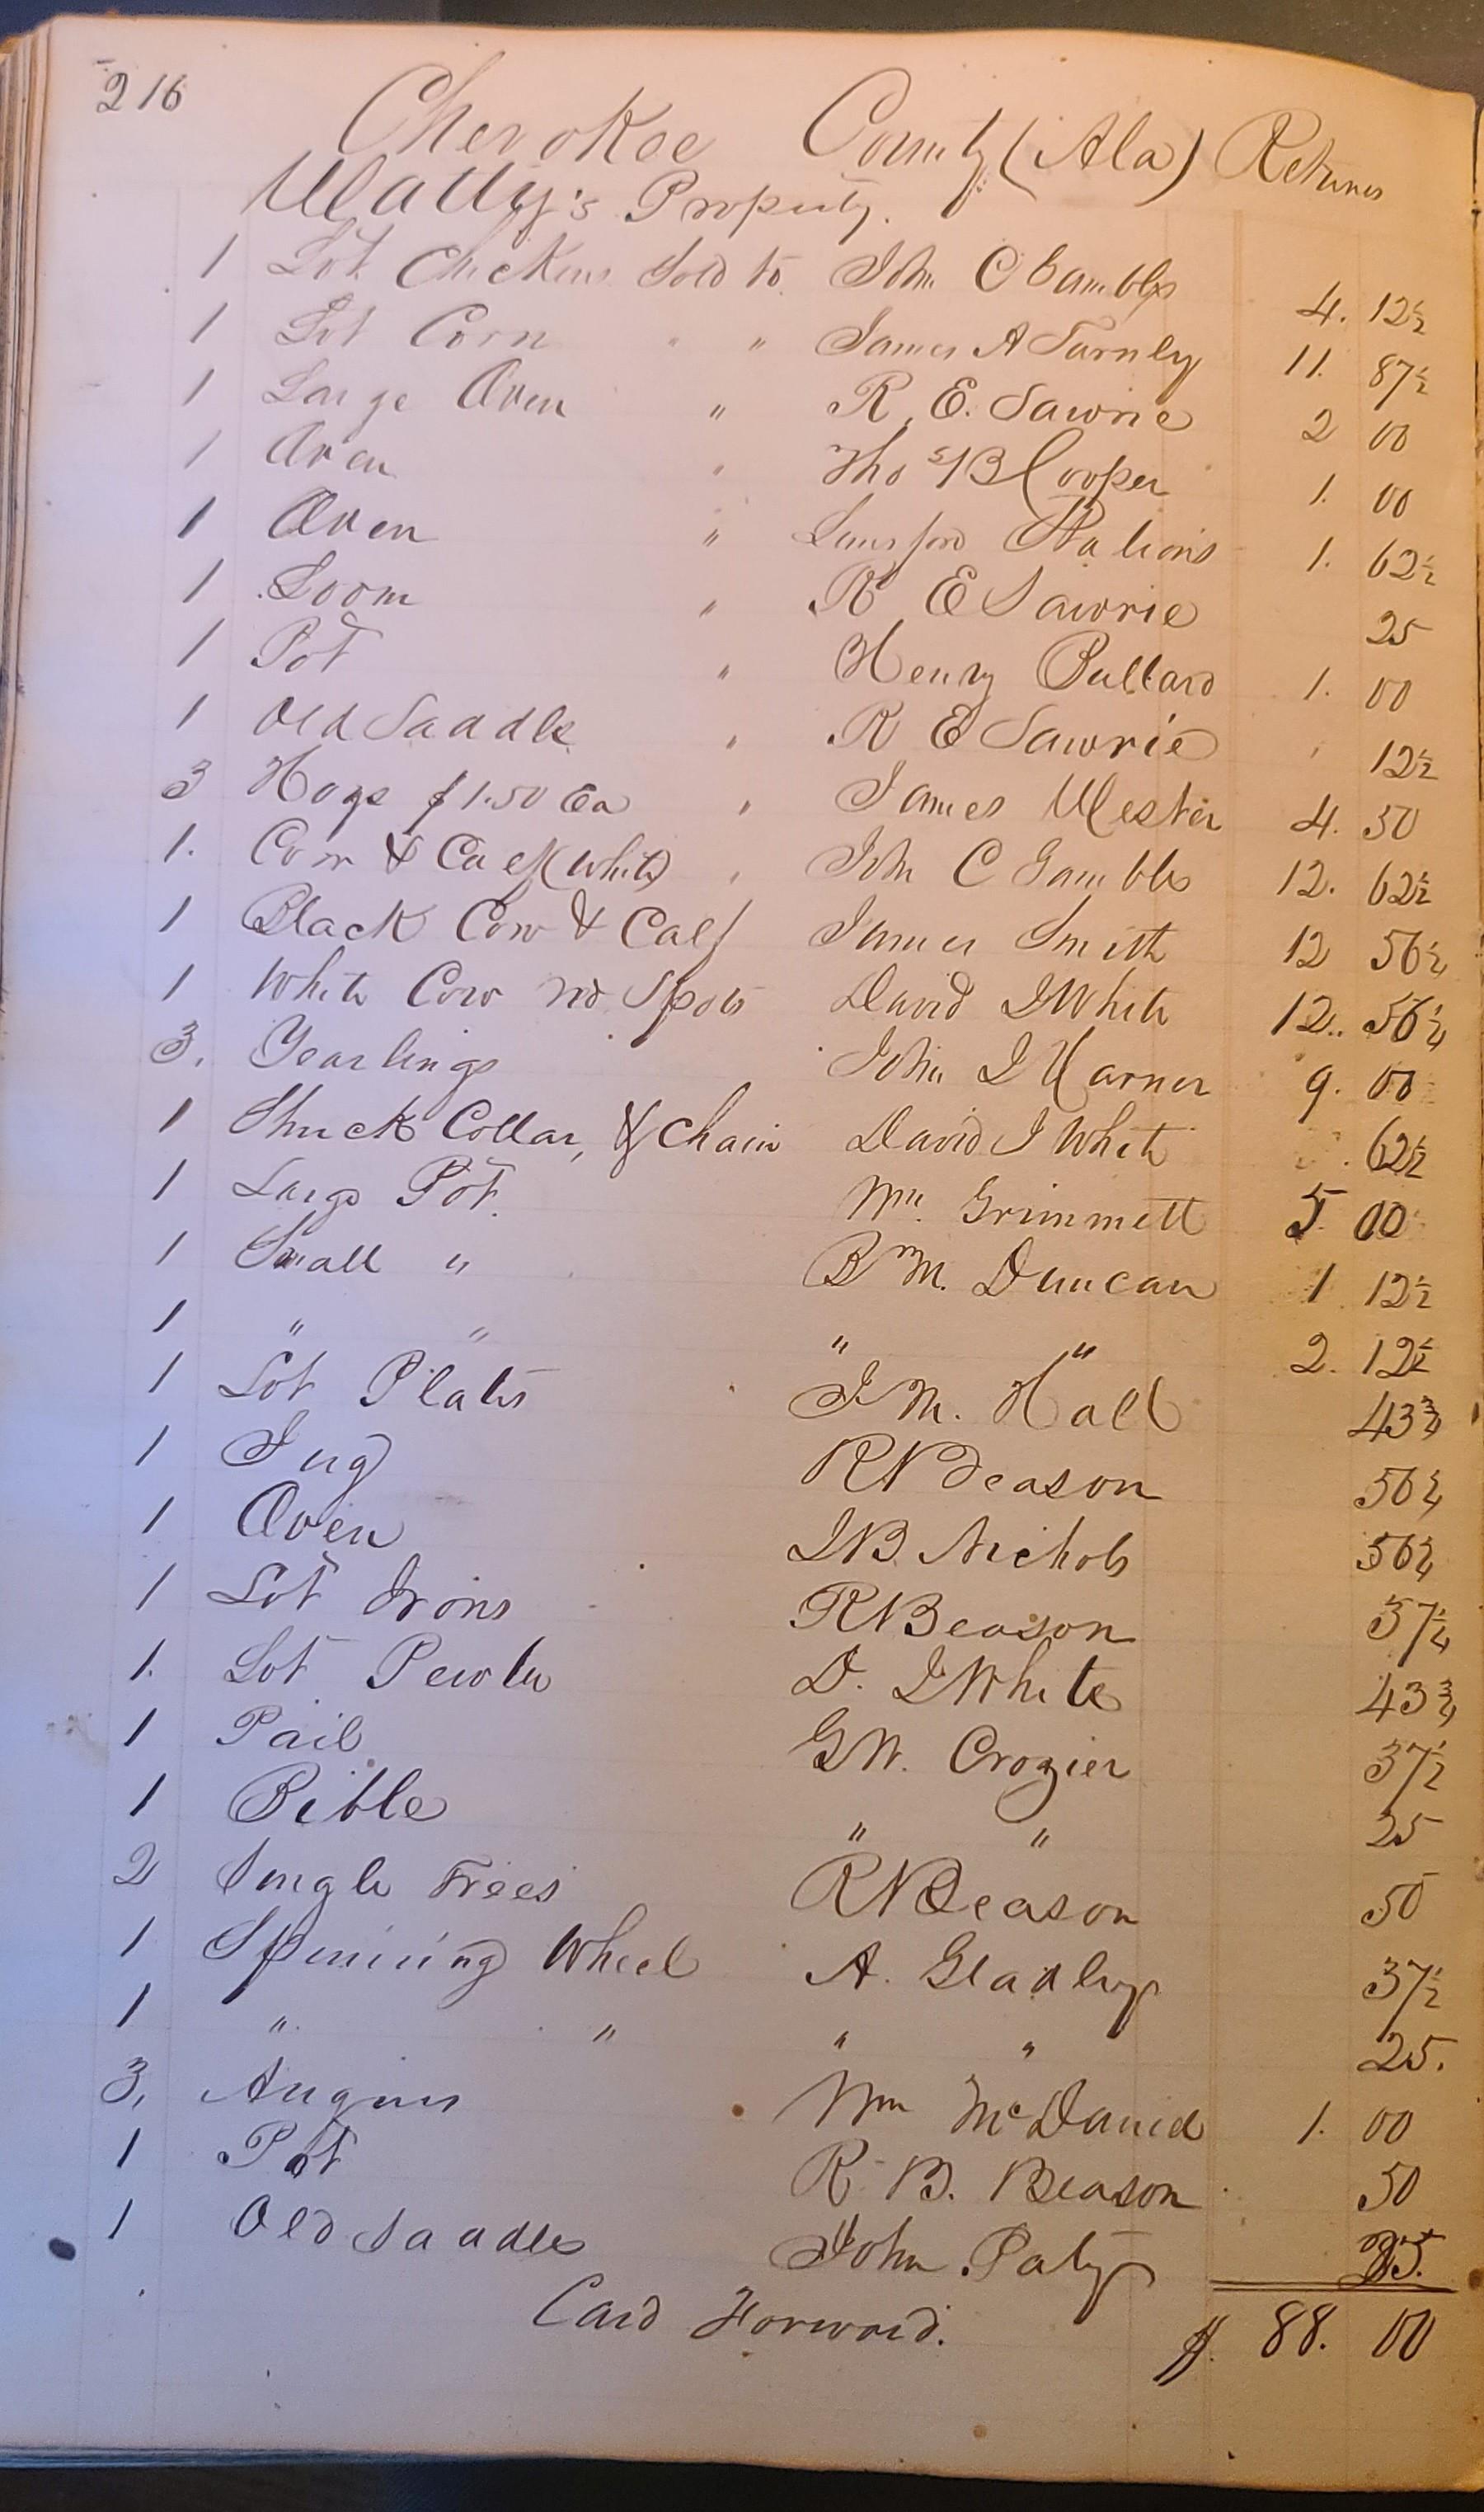 216
Cherokee County (Ala) Returns
Watty's Property.
1 Lot Chickens Sold to John C Gambles 4. 12½
1 Lot Corn " " James A Turnley 11. 87½
1 Large Oven " R. E. Sawrie 2 00
1 Oven " Thos B Cooper 1. 00
1 Oven " Lunsford Nations 1. 62½
1 Loom " R E Sawrie 25
1 Pot " Henry Bullard 1. 00
1 Old Saddle " R E Sawrie 12½
3 Hogs $1.50 Ea " James Wester 4. 50
1. Cow & Calf (White) " John C Gambles 12. 62½
1 Black Cow & Calf James Smith 12 56¼
1 White Cow no Spots David I White 12.. 56¼
3. Yearlings John I Warner 9. 00
1 Shuck Collar, & Chain David I White 62½
1 Large Pot. Wm. Grimmett 5 00
1 Small " B M. Duncan 1 12½
1 " " " " 2. 12½
1 Lot Plates J M. Hall 43¾
1 Jug R N Beason 56¼
1 Oven I B. Nichols 56¼
1 Lot Irons R N Beason 57¼
1. Lot Pewter D. I White 43¾
1 Pail G W. Crozier 37½
1 Bible " " 25
2 Single Trees R N Beason 50
1 Spinning Wheel A. Gladly 37½
1 " " " " 25.
3. Augurs Wm McDanied 1. 00
1 Pot R. B. Beason 50
1 Old Saddle John Paty 25.
Card Forward. $. 88. 00